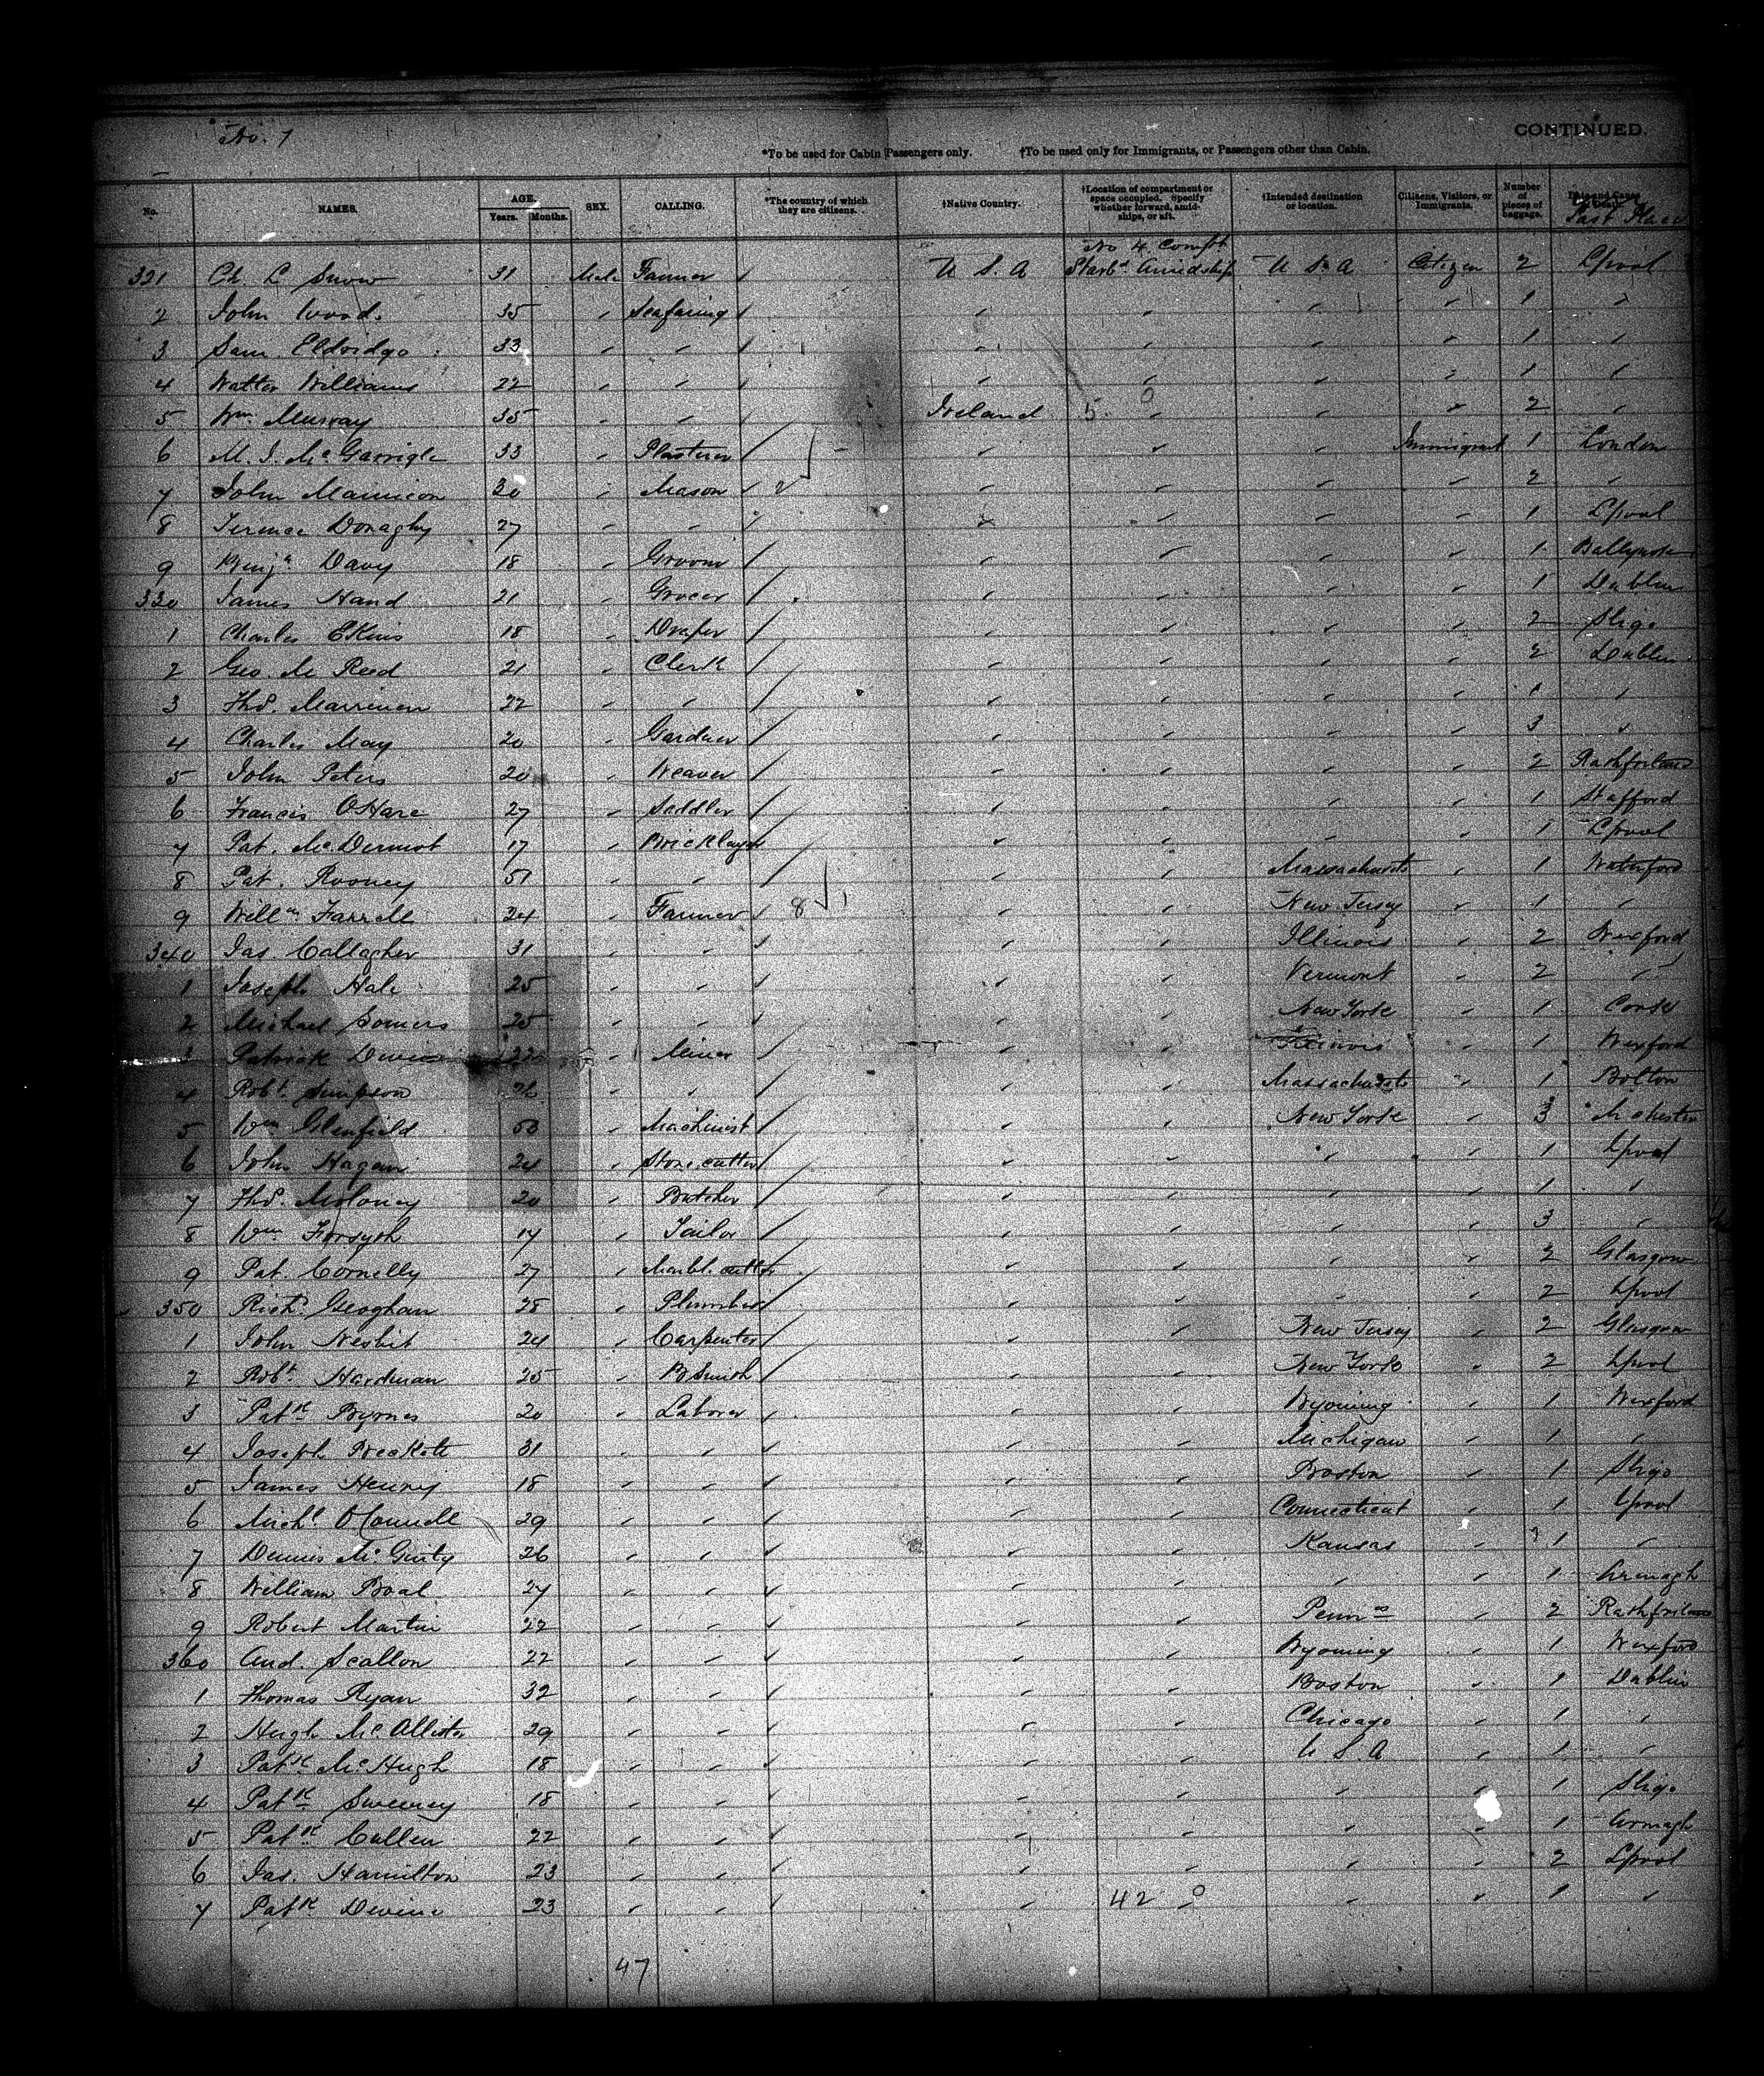 No. 7
CONTINUED.
*To be used for Cabin Passengers only. †To be used only for Immigrants, or Passengers other than Cabin.
No. NAMES. AGE. Years. Months. SEX. CALLING. *The country of which they are citizens. †Native Country. †Location of compartment or space occupied. Specify whether forward, amidships, or aft. †Intended destination or location. Citizens, Visitors, or Immigrants. Number of pieces of baggage. Date and Cause of Death. Last Place
No 4 Compt
321 Ch. L Snow 31 Male Farmer U S. A Starbd Amidship U S A Citizen 2 Lpool
2 John Woods 35 " Seafaring " " " " 1 "
3 Sam. Eldridge 33 " " " " " " 1 "
4 Walter Williams 22 " " " " " " 1 "
5 Wm. Murray 35 " " Ireland 5 " " " 2 "
6 M. J. McGarrigle 33 " Plasterer " " " Immigrant 1 London
7 John 30 " Mason 2 " " " " 2 "
8 Terence Donaghy 27 " " " " " " 1 Lpool
9 Benjn Davy 18 " Groom " " " " 1
330 James Hand 21 " Grocer " " " " 1 Dublin
1 Charles Ekins 18 " Draper " " " " 2 Sligo
2 Geo. M Reed 21 " Clerk " " " " 2 Dublin
3 Thos. 22 " " " " " " 1 "
4 Charles May 20 " Gardner " " " " 3 "
5 John Peters 20 " Weaver " " " " 2 Rathfriland
6 Francis OHare 27 " Saddler " " " " 1 Stafford
7 Pat. McDermot 17 " Bricklayer " " " " 1 Lpool
8 Pat. Rooney 51 " " " " Massachusets " 1 Waterford
9 Willm Farrell 24 " Farmer 8 " " New Jersey " 1 "
340 Jas. Gallagher 31 " " " " Illinois " 2 Wexford
1 Joseph Hale 25 " " " " Vermont " 2 "
2 Michael Somers 25 " " " " New York " 1 Cork
3 Patrick Devine " Miner " " Illinois " 1 Wexford
4 Robt Simpson " " " " Massachusets " 1 Bolton
5 Wm Glenfield 50 " Machinist " " New York " 3 Mchester
6 John Hagan 24 " Stone cutter " " " " 1 Lpool
7 Thos. Moloney 20 " Butcher " " " " 1 "
8 Wm Forsyth 17 " Tailor " " " " 3 "
9 Pat. Connelly 27 " Marbl. cutter " " " " 2 Glasgow
350 Richd Geoghan 28 " Plumber " " " " 2 Lpool
1 John Nesbit 24 " Carpenter " " New Jersey " 2 Glasgow
2 Robt Hardman 25 " BSmith " " New York " 2 Lpool
3 Patk Byrnes 20 " Laborer " " Wyoming " 1 Wexford
4 Joseph Beckett 31 " " " " Michigan " 1 "
5 James Henry 18 " " " " Boston " 1 Sligo
6 Michl OConnell 29 " " " " Connecticut " 1 Lpool
7 Dennis McGinty 26 " " " " Kansas " 1 "
8 William Boal 27 " " " " " " 1 Armagh
9 Robert Martin 22 " " " " Penna " 2 Rathfriland
360 And. Scallon 22 " " " " Wyoming " 1 Wexford
1 Thomas Ryan 32 " " " " Boston " 1 Dublin
2 Hugh McAllister 29 " " " " Chicago " 1 "
3 Patk McHugh 18 " " " " U S. A " 1 "
4 Patk Sweeney 18 " " " " " " 1 Sligo
5 Patk Cullen 22 " " " " " " 1 Armagh
6 Jas. Hamilton 23 " " " " " " 2 Lpool
7 Patk Devine 23 " " " 42 " " " 1 "
47